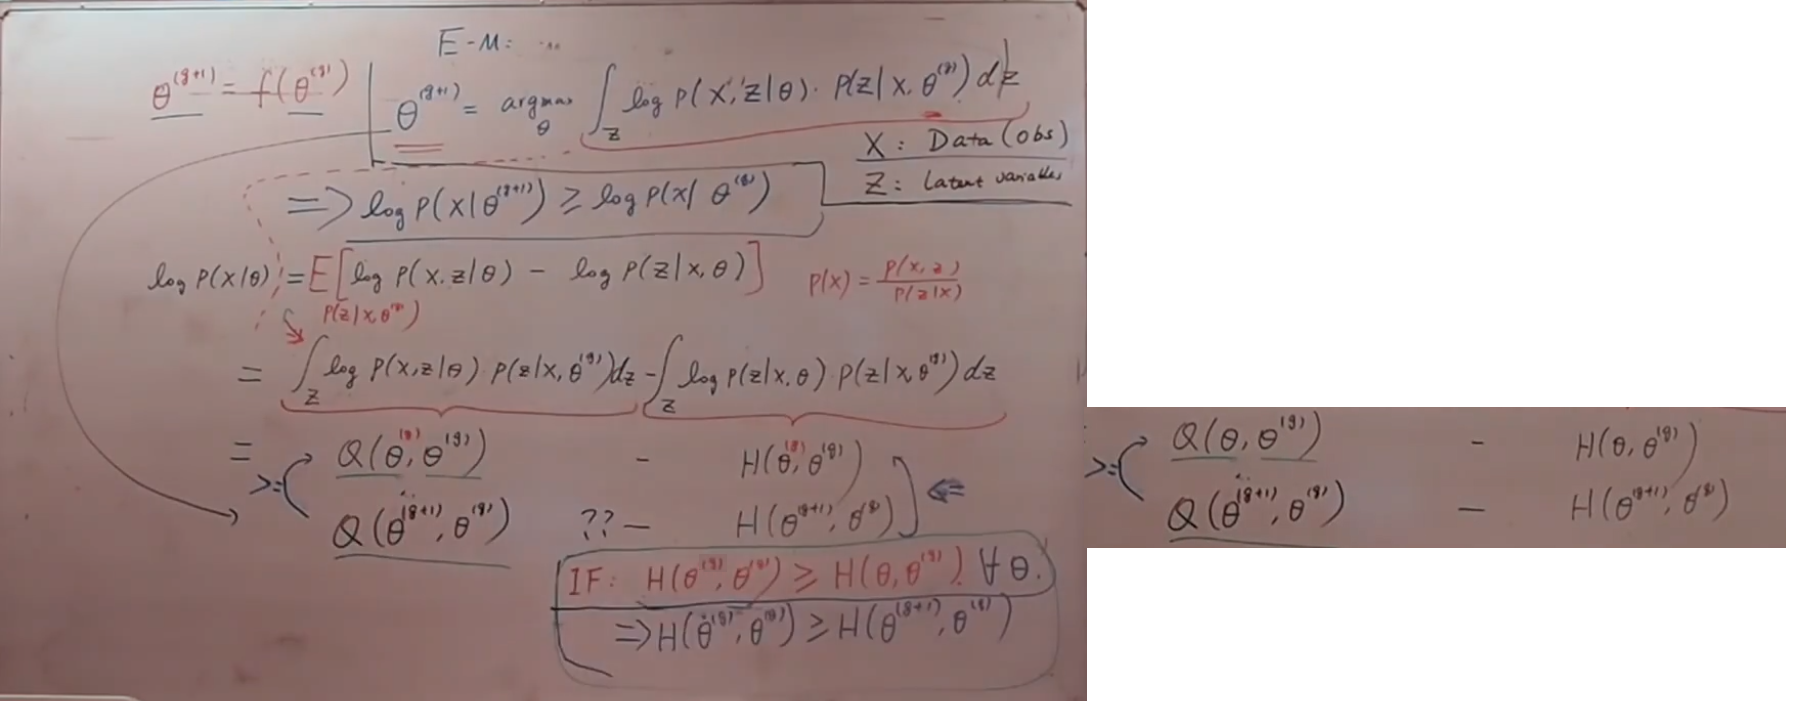 E-M:
θ^(g+1) = f(θ^(g))
θ^(g+1) = argmax_θ ∫_z log P(X, Z|θ) · P(Z|X, θ^(g)) dz
X: Data (obs)
Z: Latent variables
=> log P(X|θ^(g+1)) ≥ log P(X|θ^(g))
log P(X|θ) = E[log P(X, Z|θ) - log P(Z|X, θ)]
P(Z|X, θ^(g))
P(X) = P(X, Z) / P(Z|X)
= ∫_z log P(X, Z|θ) · P(Z|X, θ^(g)) dz - ∫_z log P(Z|X, θ) · P(Z|X, θ^(g)) dz
= Q(θ^(g), θ^(g)) - H(θ^(g), θ^(g))
>= Q(θ^(g+1), θ^(g)) ?? - H(θ^(g+1), θ^(g)) <=
IF: H(θ^(g), θ^(g)) ≥ H(θ, θ^(g)) ∀ θ.
=> H(θ^(g), θ^(g)) ≥ H(θ^(g+1), θ^(g))
Q(θ, θ^(g)) - H(θ, θ^(g))
>= Q(θ^(g+1), θ^(g)) - H(θ^(g+1), θ^(g))